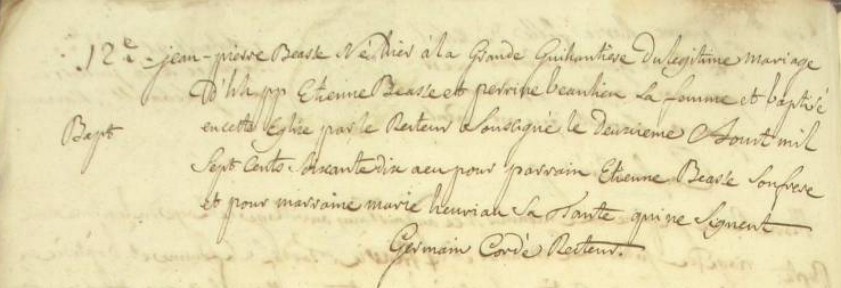 12e. jean-pierre Beasse Né hier à la Grande Guihantiere Du legitime mariage
D'hh pp Etienne Beasse et perrine beaulieu Sa femme et baptisé
Bapt
en cette Eglise par le Recteur Soussigné le Deuxieme Aoust mil
Sept Cents Soixante dix a eu pour parrain Etienne Beasse Son frere
et pour marraine marie heuriau Sa Tante qui ne Signent
Germain Cordé Recteur.